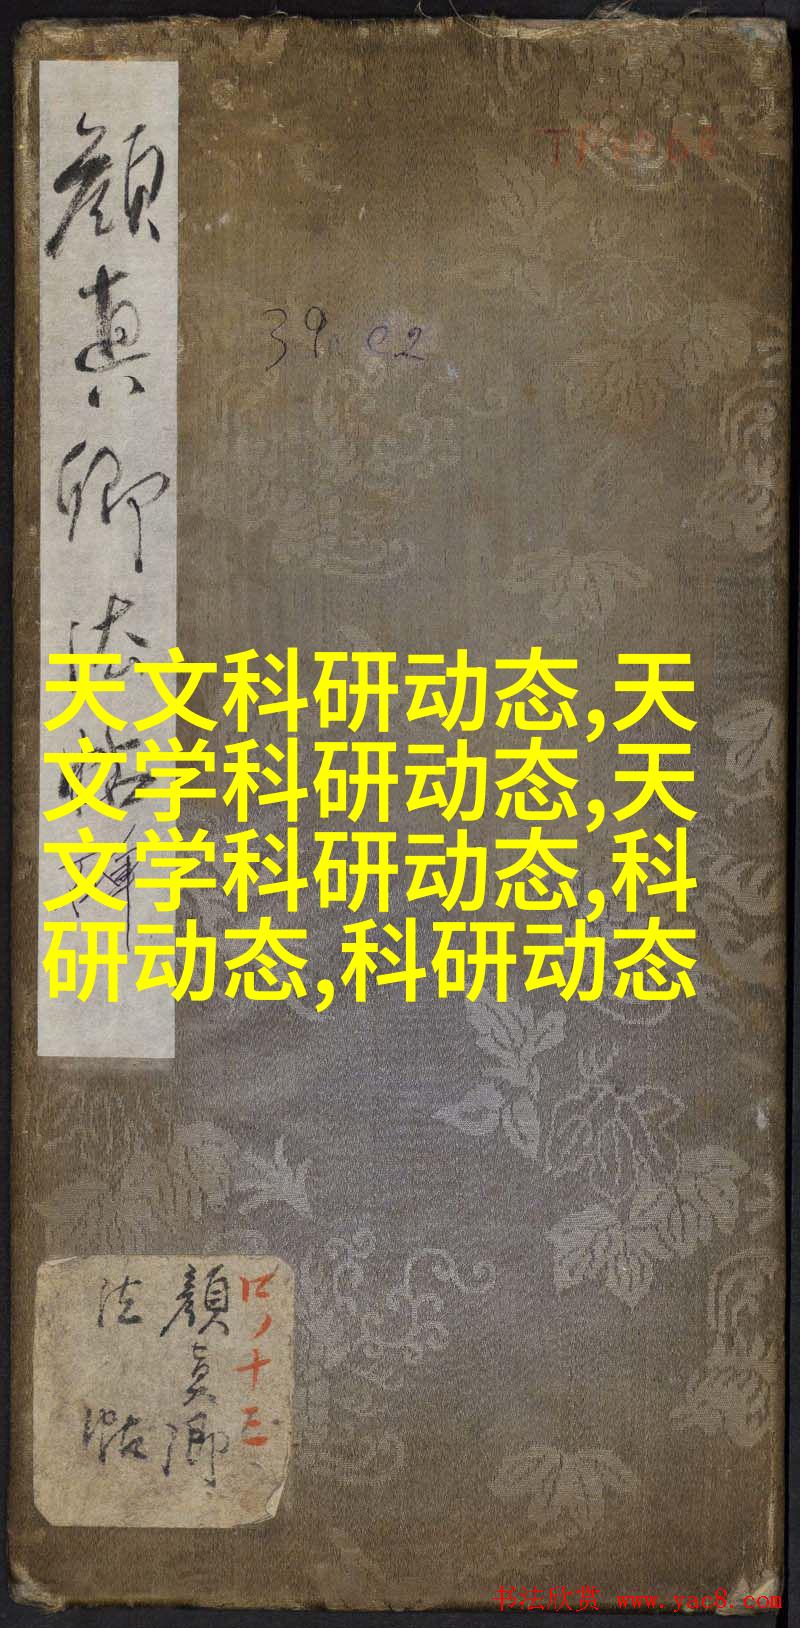 TP2068
39.e2
顔真卿法帖
天文科研动态,天
文学科研动态,天
文学科研动态,科
研动态,科研动态
口ノ十三
顔真卿
法帖
书法欣赏 www.yac8.com